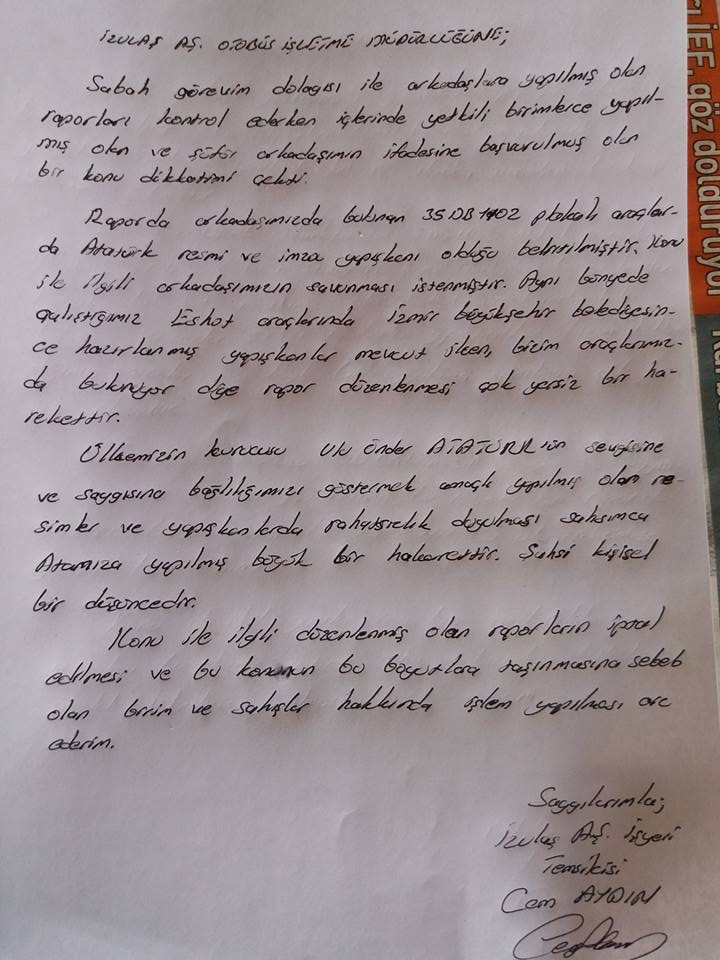 İZULAŞ AŞ. OTOBÜS İŞLETME MÜDÜRLÜĞÜNE;
Sabah görevim dolayısı ile arkadaşlara yapılmış olan
raporları kontrol ederken içlerinde yetkili birimlerce yapıl-
mış olan ve şöför arkadaşımın ifadesine başvurulmuş olan
bir konu dikkatimi çekti.
Raporda arkadaşımızda bulunan 35 DB 1402 plakalı araçlar-
da Atatürk resmi ve imza yapışkanı olduğu belirtilmiştir. Konu
ile ilgili arkadaşımızın savunması istenmiştir. Aynı bünyede
çalıştığımız Eshot araçlarında İzmir büyükşehir belediyesin-
ce hazırlanmış yapışkanlar mevcut iken, bizim araçlarımız-
da bulunuyor diye rapor düzenlenmesi çok yersiz bir ha-
rekettir.
Ülkemizin kurucusu Ulu Önder ATATÜRK'ün sevgisine
ve saygısına bağlılığımızı göstermek amaçlı yapılmış olan re-
simler ve yapışkanlarda rahatsızlık duyulması şahsımca
Atamıza yapılmış büyük bir hakarettir. Şahsi kişisel
bir düşüncedir.
Konu ile ilgili düzenlenmiş olan raporların iptal
edilmesi ve bu konunun bu boyutlara taşınmasına sebeb
olan birim ve şahışlar hakkında işlem yapılması arz
ederim.
Saygılarımla;
İzulaş AŞ. İşyeri
Temsilcisi
Cem AYDIN
İEF, göz dolduruyor